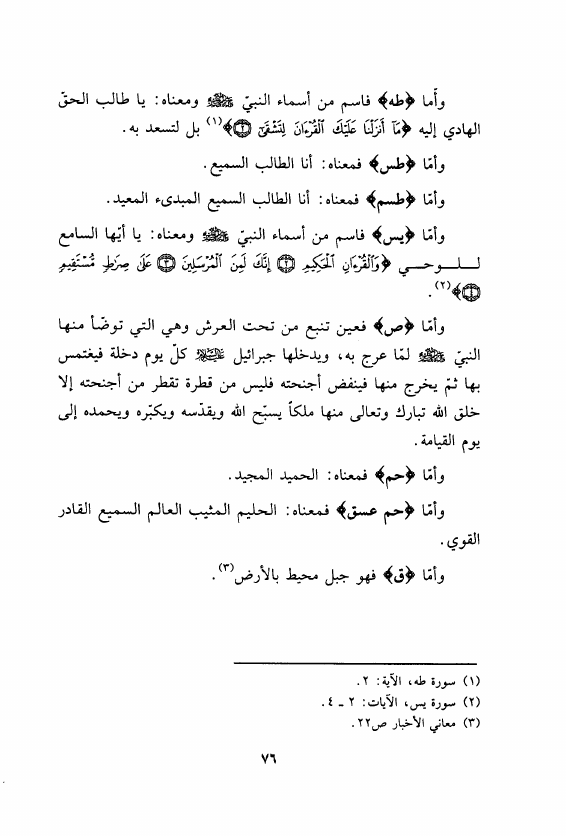 وأما ﴿طه﴾ فاسم من أسماء النبيّ ﷺ ومعناه: يا طالب الحقّ
الهادي إليه ﴿مَآ أَنزَلْنَا عَلَيْكَ ٱلْقُرْءَانَ لِتَشْقَىٰٓ ۝٢﴾(١) بل لتسعد به.
وأمّا ﴿طس﴾ فمعناه: أنا الطالب السميع.
وأمّا ﴿طسم﴾ فمعناه: أنا الطالب السميع المبدىء المعيد.
وأمّا ﴿يس﴾ فاسم من أسماء النبيّ ﷺ ومعناه: يا أيّها السامع
لـلـوحـي ﴿وَٱلْقُرْءَانِ ٱلْحَكِيمِ ۝٢ إِنَّكَ لَمِنَ ٱلْمُرْسَلِينَ ۝٣ عَلَىٰ صِرَٰطٍ مُّسْتَقِيمٍ
۝٤﴾(٢).
وأمّا ﴿ص﴾ فعين تنبع من تحت العرش وهي التي توضّأ منها
النبيّ ﷺ لمّا عرج به، ويدخلها جبرائيل عليه السلام كلّ يوم دخلة فيغتمس
بها ثمّ يخرج منها فينفض أجنحته فليس من قطرة تقطر من أجنحته إلا
خلق الله تبارك وتعالى منها ملكاً يسبّح الله ويقدّسه ويكبّره ويحمده إلى
يوم القيامة.
وأمّا ﴿حم﴾ فمعناه: الحميد المجيد.
وأمّا ﴿حم عسق﴾ فمعناه: الحليم المثيب العالم السميع القادر
القوي.
وأمّا ﴿ق﴾ فهو جبل محيط بالأرض(٣).
(١) سورة طه، الآية: ٢.
(٢) سورة يس، الآيات: ٢ ـ ٤.
(٣) معاني الأخبار ص٢٢.
٧٦